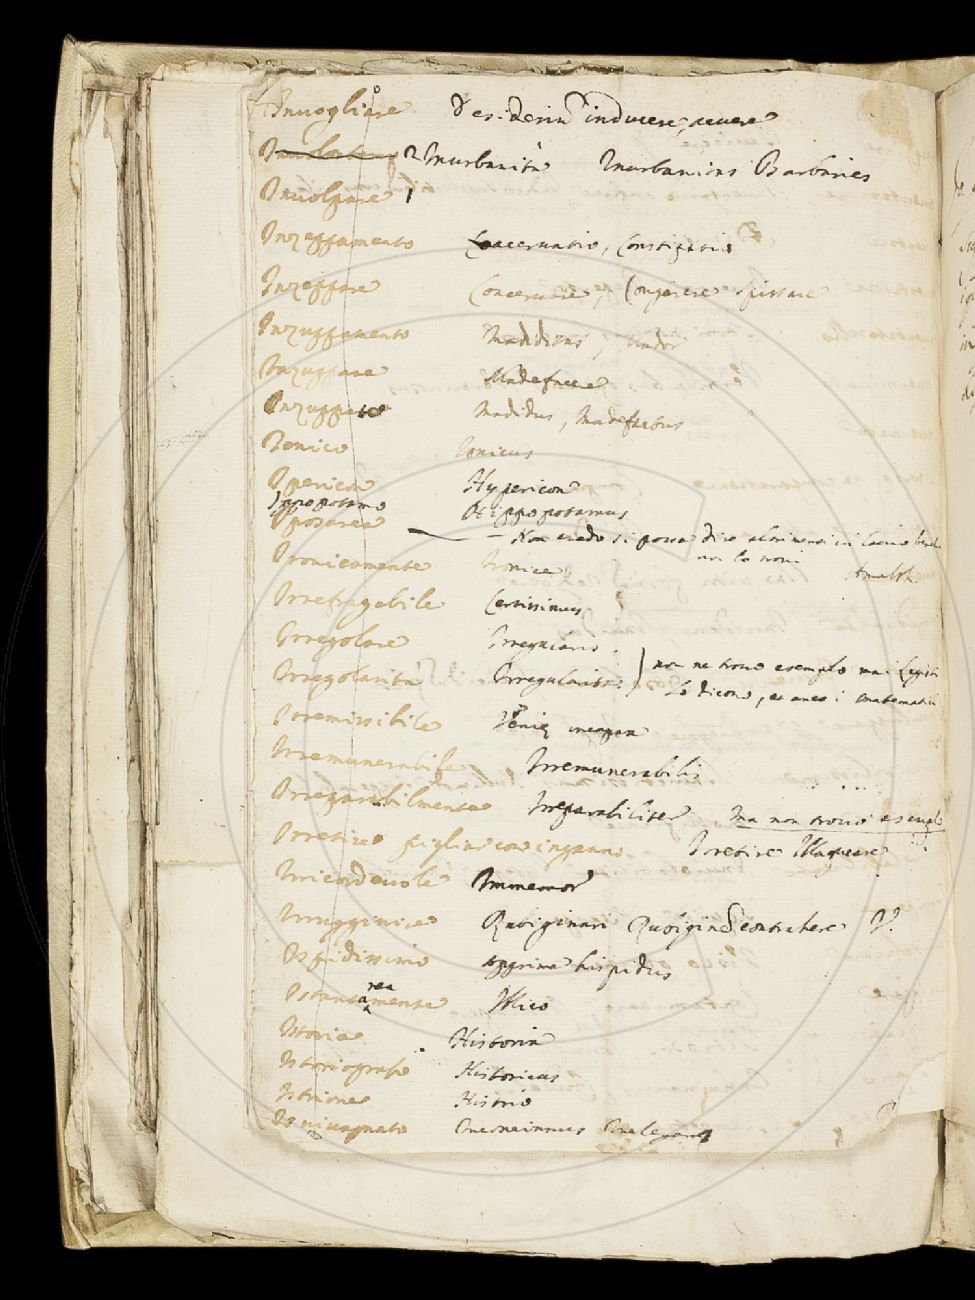 Invogliare Desideriu inducere, movere
Inurbanità Inurbanitas Barbaries
Involpare
Inzeppamento Coacervatio, Constipatio
Inzeppare Coacervare, Congerere Spissare
Inzuppamento Madiditas, Mador
Inzuppare Madefacere
Inzuppato Madidus, Madefactus
Ionico Ionicus
Ipericon Hypericon
Ippopotamo Hippopotamus
Iposarca
Non credo si possa dire altrimenti in latino
non lo trovi Amalth.
Ironicamente Ironice
Irrefragabile Certissimus
Irregolare Irregularis
Irregolarità Irregularitas
non ne trovo esemplo ma i Legisti
lo dicono, et anco i matematici
Irremissibile Veniæ incapax
Irremunerabile Irremunerabilis
Irreparabilmente Irreparabiliter Ma non trovo esempl
Irretire pigliar con inganno Irretire Illaqueare
Irricordevole Immemor
Irrugginire Rubiginari Rubigine contrahere V.
Ispidissimo apprime hispidus
Istantaneamente Illico
Istoria Historia
Istoriografo Historicus
Istrione Histrio